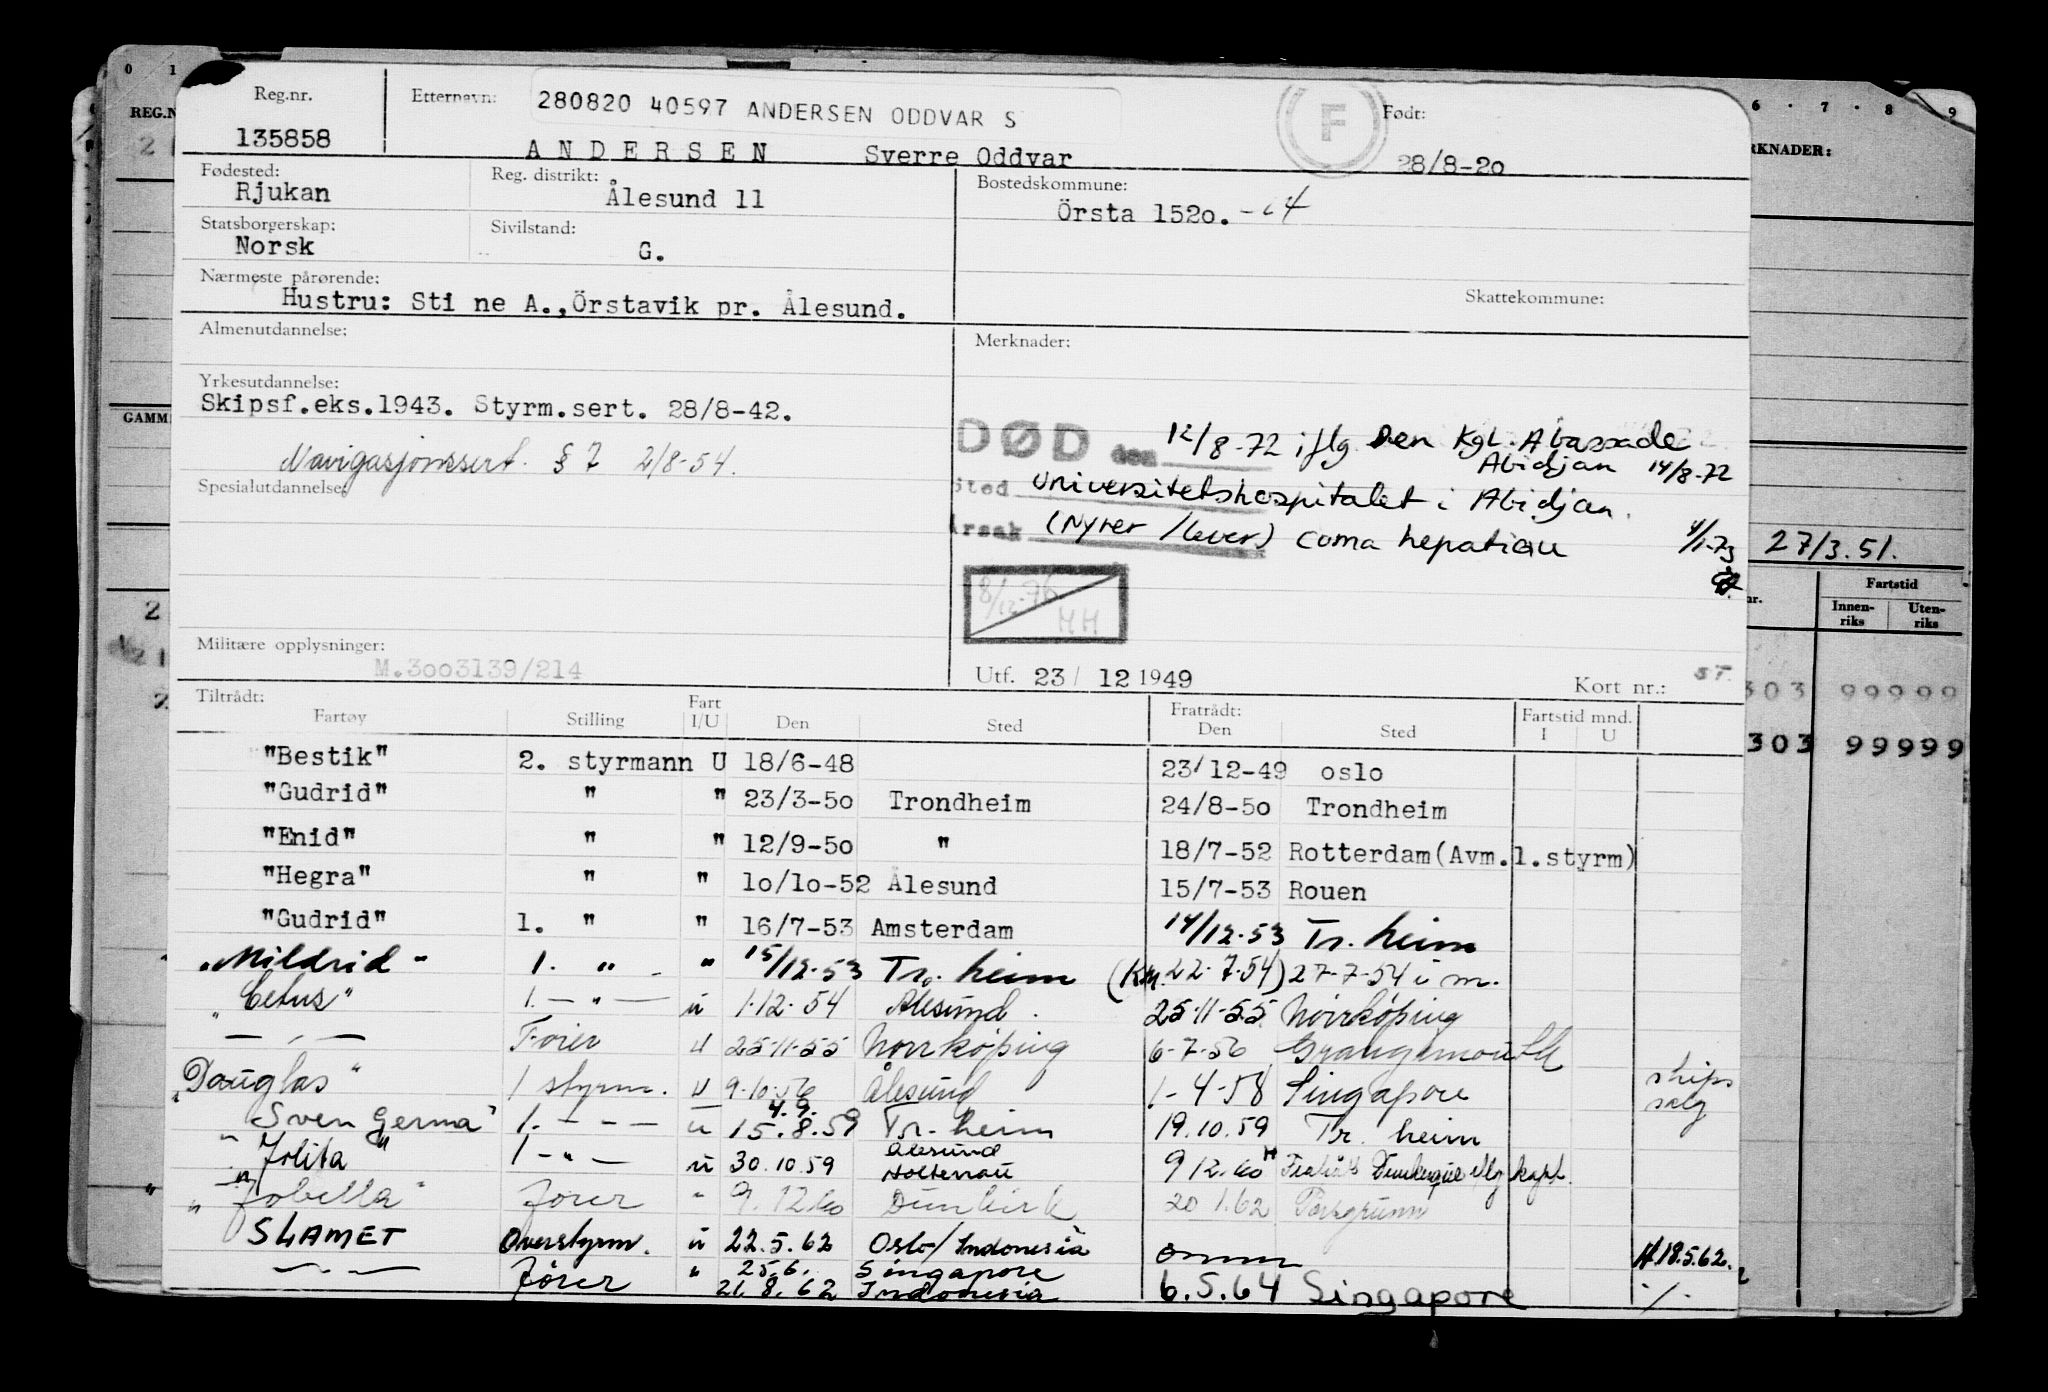 Reg.nr. Etternavn: 280820 40597 ANDERSEN ODDVAR S F Født:
135858 ANDERSEN Sverre Oddvar 28/8-20
Fødested: Reg. distrikt: Bostedskommune:
Rjukan Ålesund 11 Örsta 152o.
Statsborgerskap: Sivilstand:
Norsk G.
Nærmeste pårørende: Skattekommune:
Hustru: Sti ne A.,Örstavik pr. Ålesund.
Almenutdannelse: Merknader:
Yrkesutdannelse:
Skipsf.eks.1943. Styrm.sert. 28/8-42.
Navigasjonssert. § 7 2/8-54.
Spesialutdannelse:
DØD den 12/8-72 iflg. Den Kgl. Abassade
Abidjan 14/8-72
Sted Universitetshospitalet i Abidjan.
Årsak (Nyrer /lever) coma hepatiqu 4/1-73
8/12-76 HH
Militære opplysninger:
M.3oo3139/214 Utf. 23/ 12 1949 Kort nr.:
Tiltrådt: Fratrådt:
Fartøy Stilling Fart I/U Den Sted Den Sted Fartstid mnd. I U
"Bestik" 2. styrmann U 18/6-48 23/12-49 oslo
"Gudrid" " " 23/3-50 Trondheim 24/8-5o Trondheim
"Enid" " " 12/9-5o " 18/7-52 Rotterdam(Avm.1.styrm)
"Hegra" " " 1o/1o-52 Ålesund 15/7-53 Rouen
"Gudrid" 1. " " 16/7-53 Amsterdam 14/12.53 Tr.heim
"Mildrid" 1. " - " 15/12.53 Tr.heim (Km. 22.7.54) 27-7-54 i m.
"Cetus" 1. — " — u 1.12.54 Ålesund. 25-11-55 Norrköping
— " — Fører U 25-11-55 Norrköping 6-7-56 Grangemouth
"Douglas" 1 styrm. U 9.10.56 Ålesund 1-4-58 Singapore skips salg
"Sven Germa" 1. - - - u 4.9. 15.8.59 Tr.heim 19.10.59 Tr.heim
"Jolita" 1 - " - u 30.10.59 Ålesund Holtenau 9 12.60
"Jobella" Fører " 9.12.60 Dunkirk 20 1.62 Porsgrunn
SLAMET Overstyrm. u 22.5.62 Oslo/Indonesia omm H18.5.62.
— " — Fører " 25.6. Singapore
21.8.62 Indonesia 6.5.64 Singapore
REG.N
GAMM
RKNADER:
27/3.51.
nr. Fartstid
Innen-riks Uten-riks
303 99999
303 99999